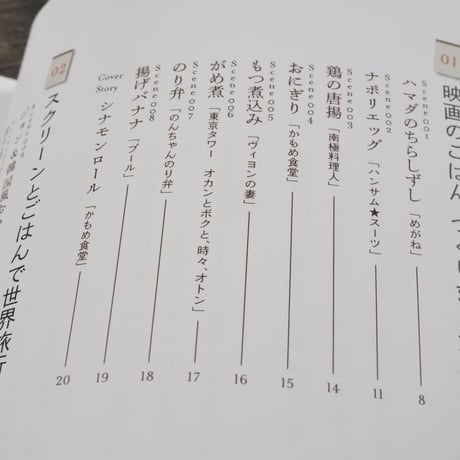 01
映画のごはん
Scene 001
ハマダのちらしずし「めがね」
8
Scene 002
ナポリエッグ「ハンサム★スーツ」
11
Scene 003
鶏の唐揚「南極料理人」
14
Scene 004
おにぎり「かもめ食堂」
15
Scene 005
もつ煮込み「ヴィヨンの妻」
16
Scene 006
がめ煮「東京タワー オカンとボクと、時々、オトン」
17
Scene 007
のり弁「のんちゃんのり弁」
18
Scene 008
揚げバナナ「プール」
19
Cover Story
シナモンロール「かもめ食堂」
20
02
スクリーンとごはんで世界旅行